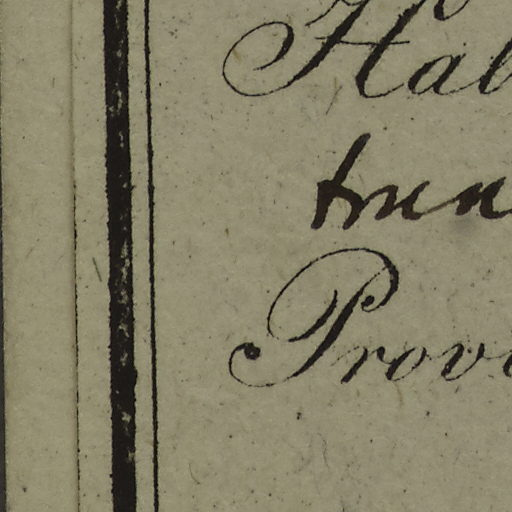 Hab
trun
Provi